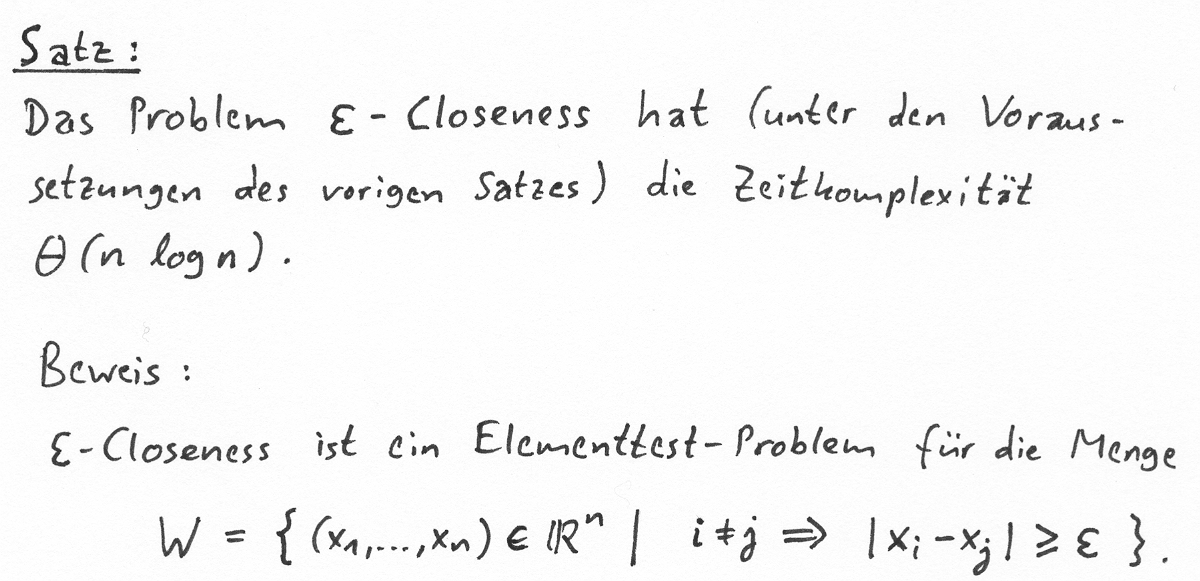 Satz:
Das Problem ε-Closeness hat (unter den Voraus-
setzungen des vorigen Satzes) die Zeitkomplexität
Θ(n log n).
Beweis:
ε-Closeness ist ein Elementtest-Problem für die Menge
W = { (x₁,...,xₙ) ∈ ℝⁿ | i ≠ j ⇒ |xᵢ - xⱼ| ≥ ε }.